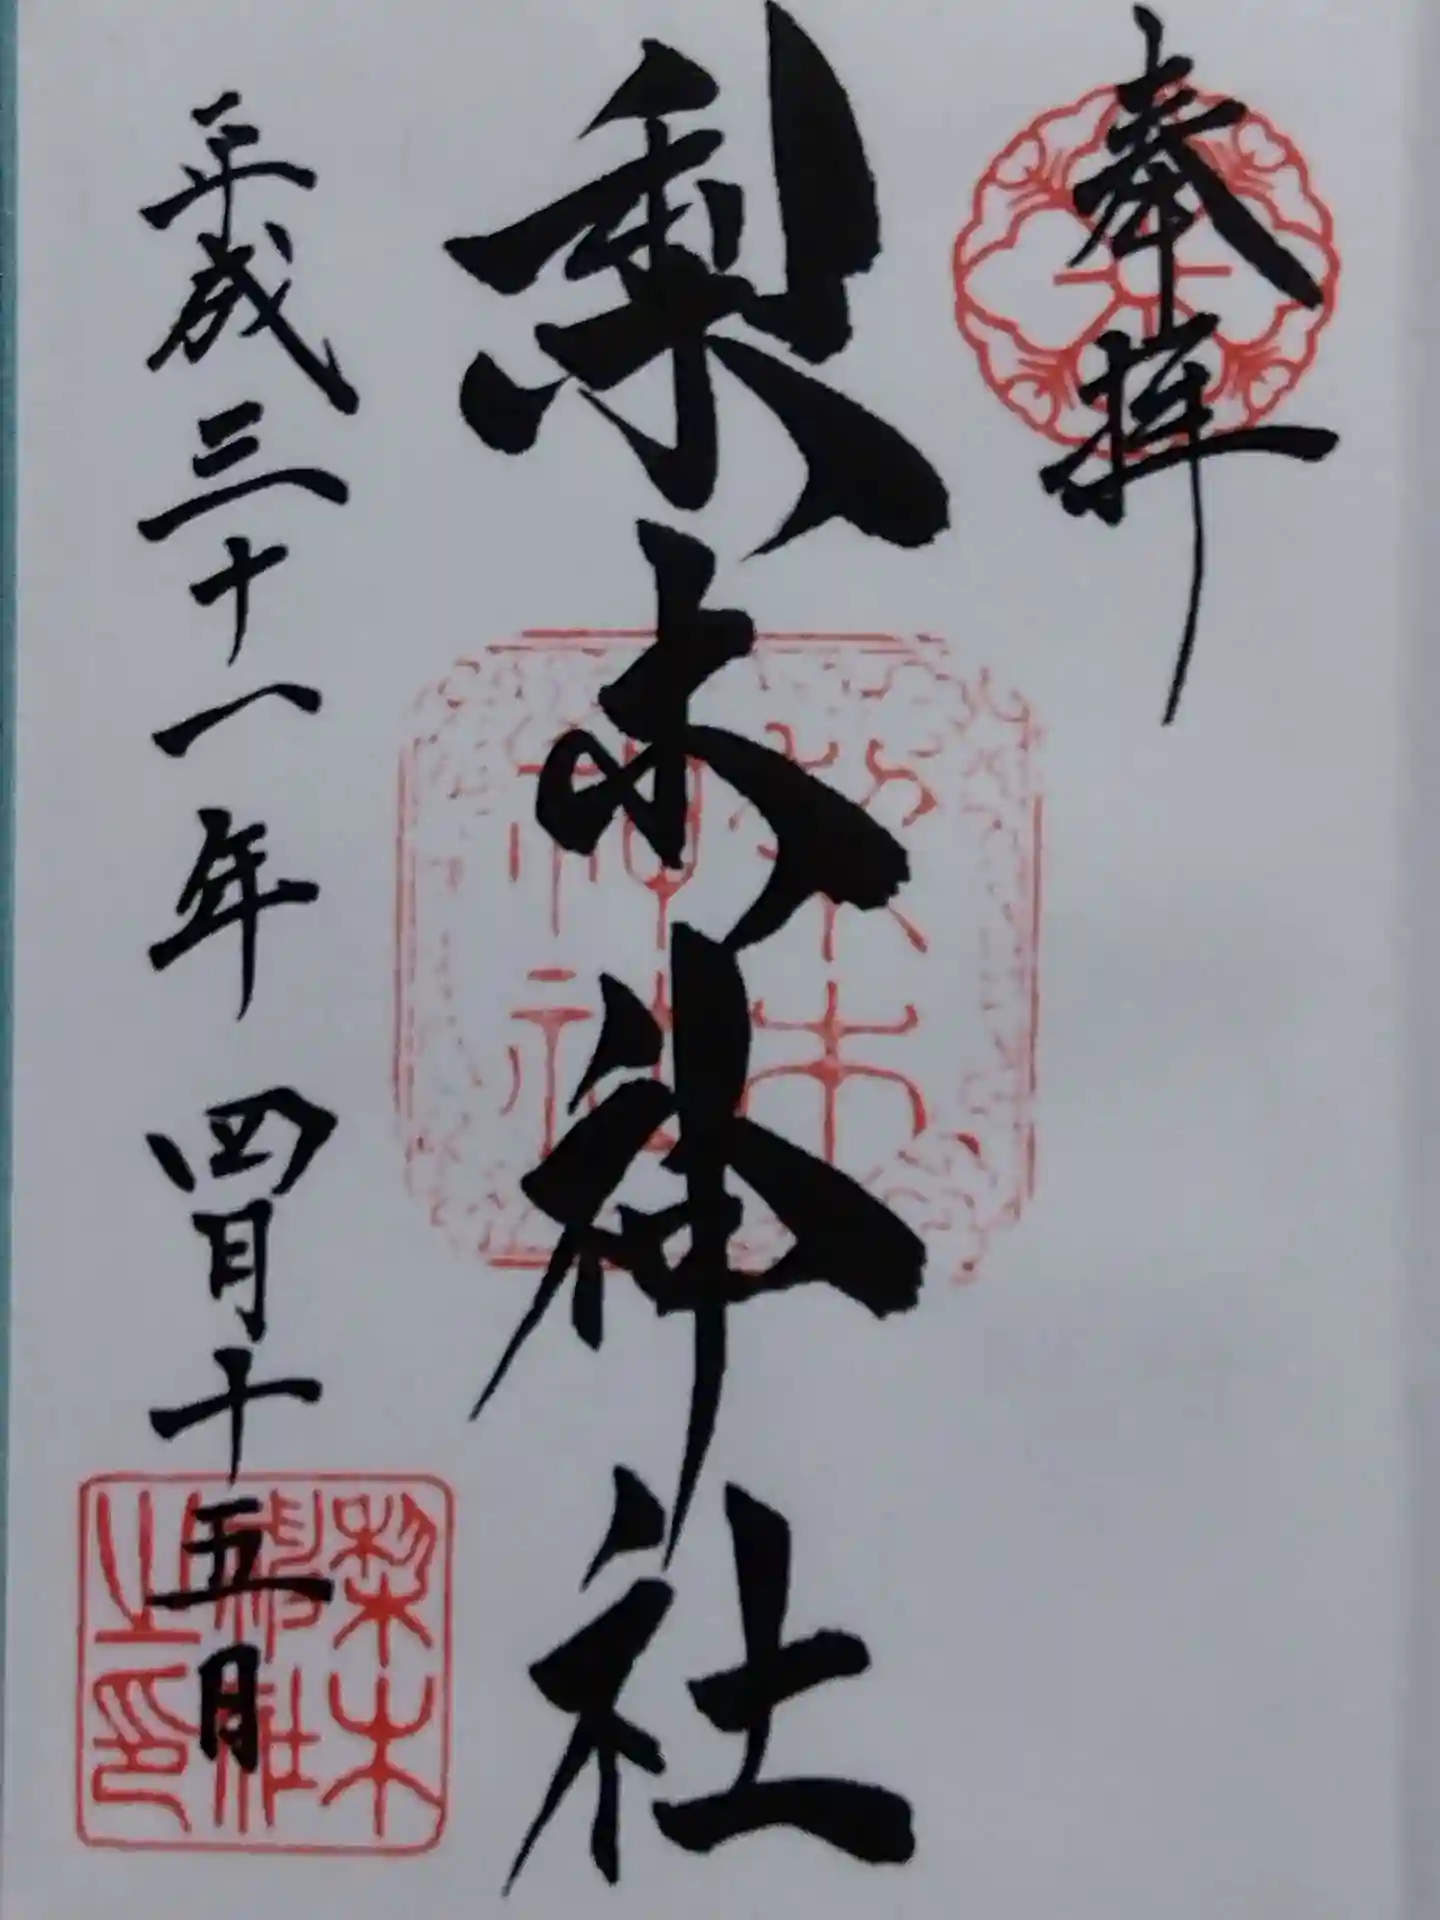 奉拝
梨木神社
平成三十一年 四月十五日
梨木
神社
梨木
神社
之印